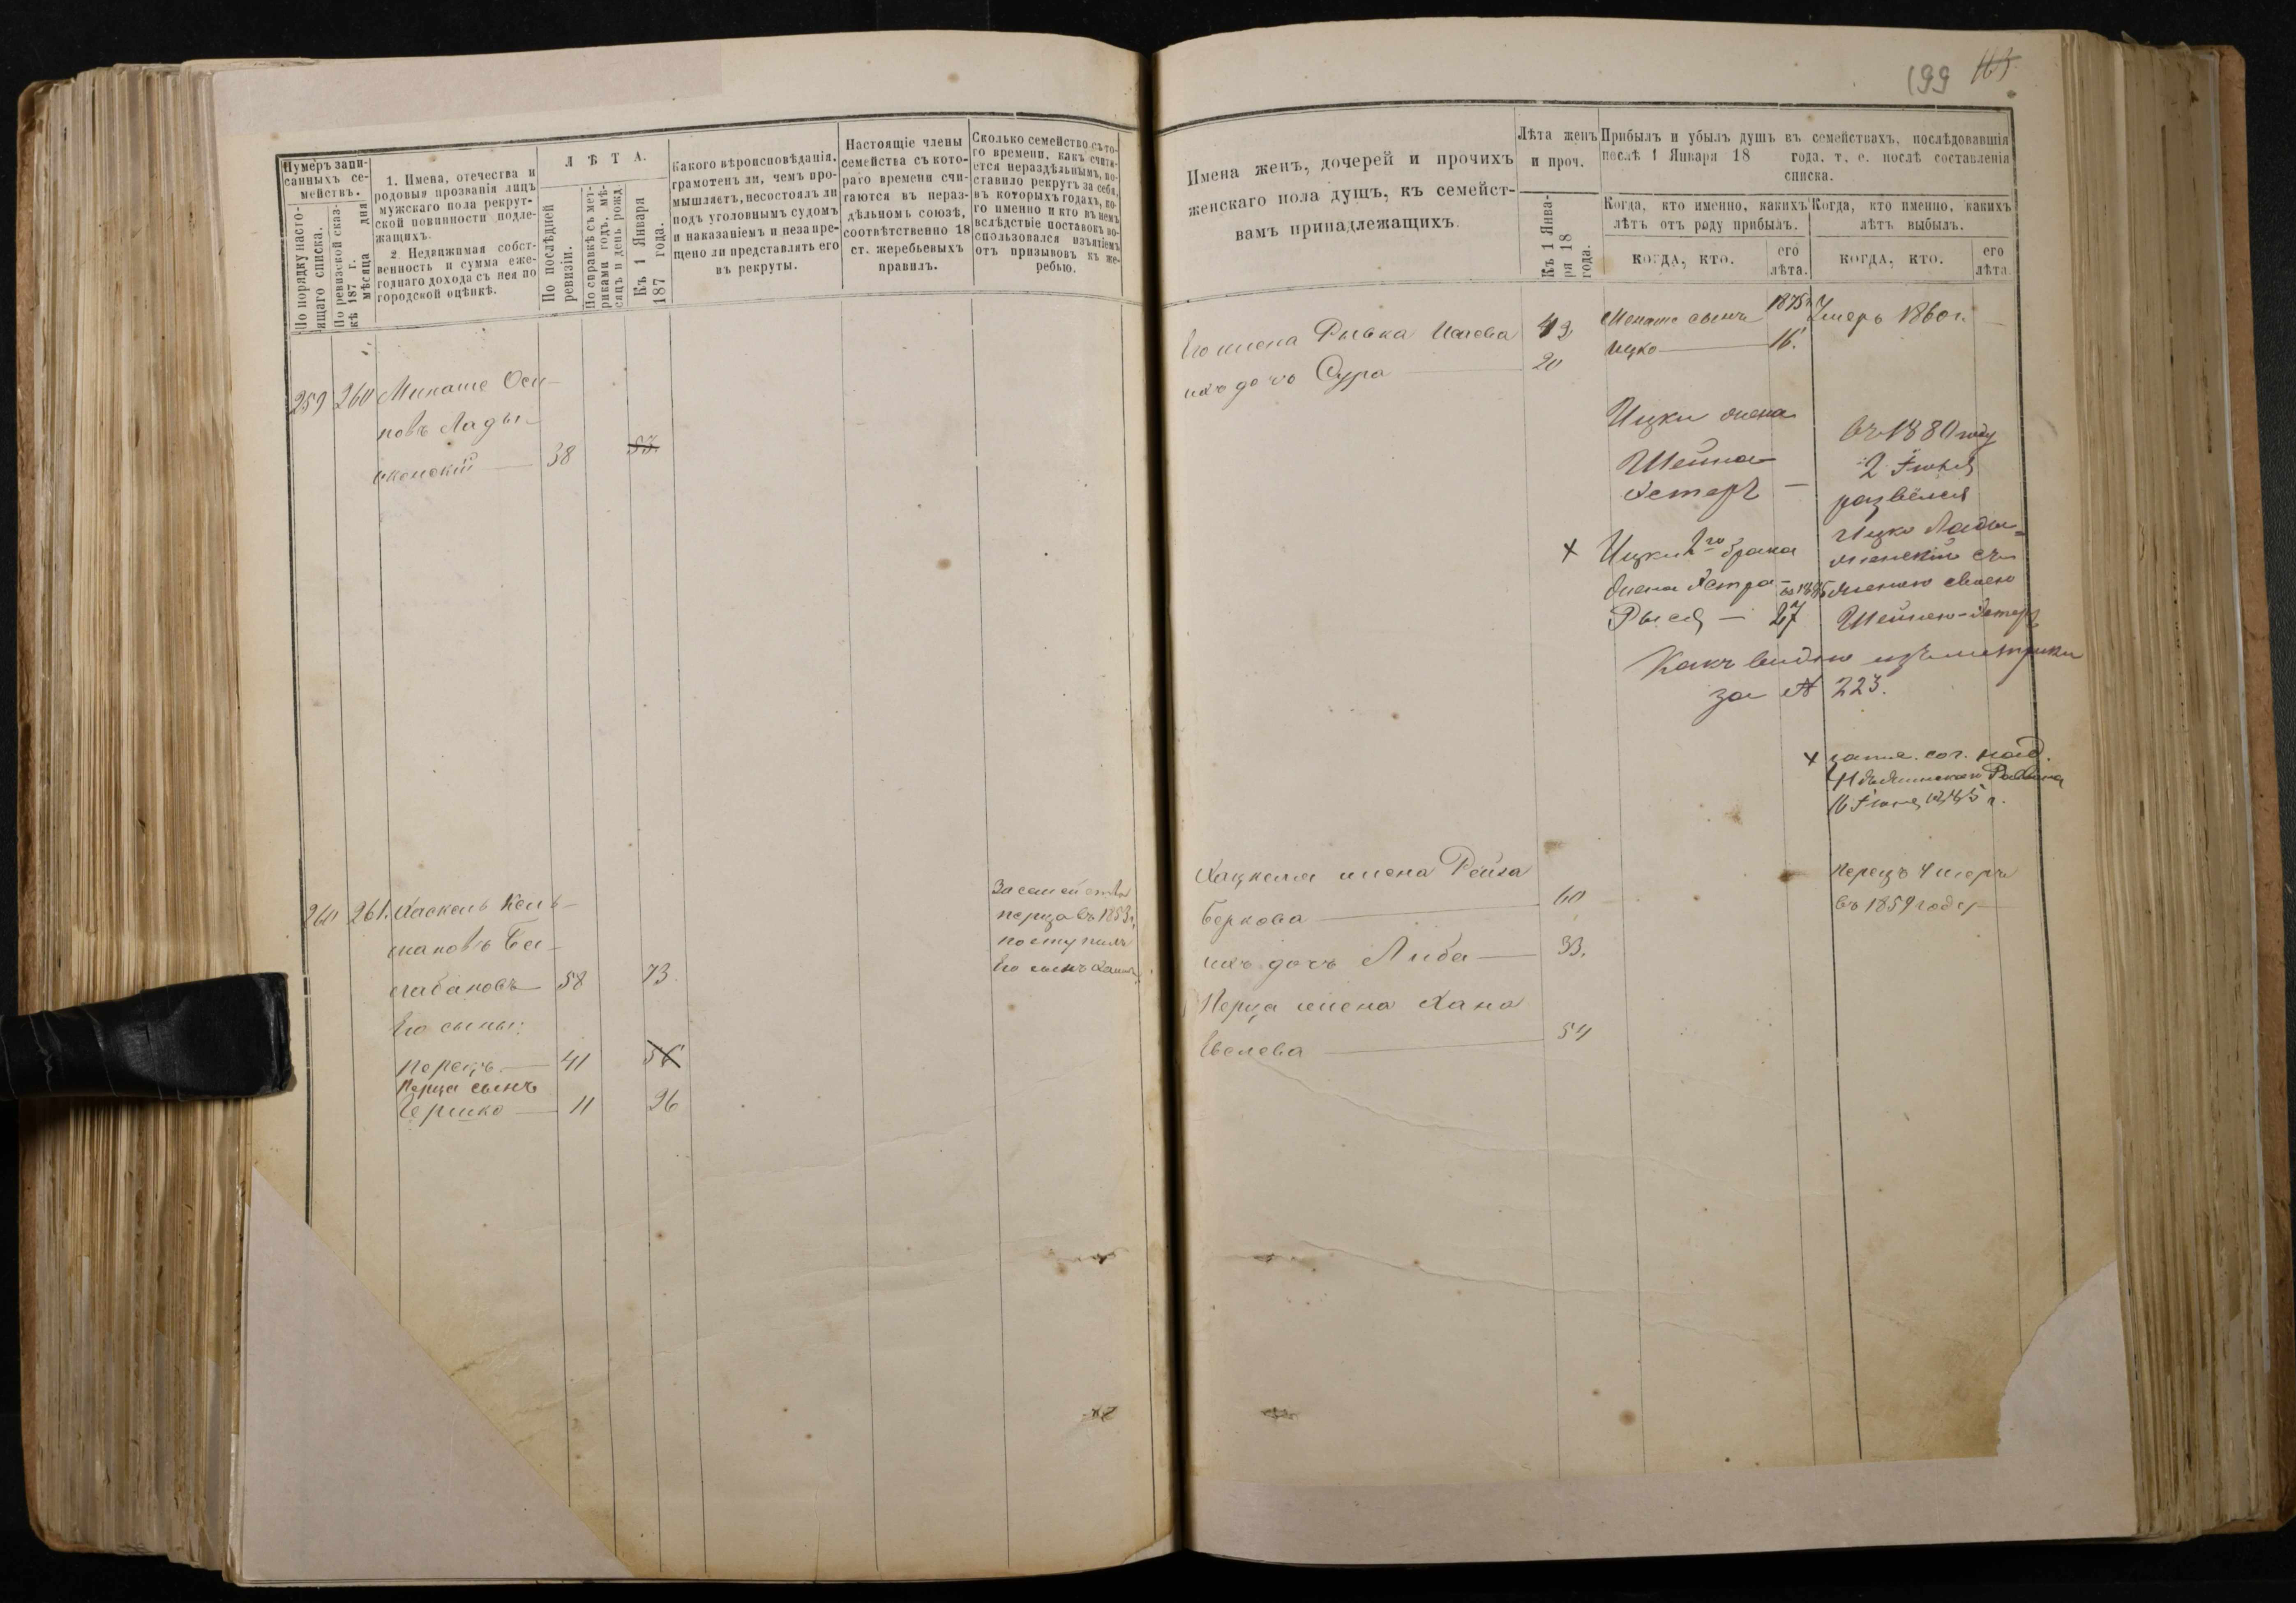 Нумеръ запи-
санныхъ се-
мействъ.
По порядку насто-
ящаго списка.
По ревизской сказ-
кѣ 187 г.
мѣсяца дня
1. Имена, отечества и
родовыя прозванія лицъ
мужскаго пола рекрут-
ской повинности подле-
жащихъ.
2. Недвижимая собст-
венность и сумма еже-
годнаго дохода съ нея по
городской оцѣнкѣ.
ЛѢТА.
По послѣдней
ревизіи.
По справкѣ съ мет-
риками годъ, мѣ-
сяцъ и день рожд
Къ 1 Января
187 года.
Какого вѣроисповѣданія,
грамотенъ ли, чемъ про-
мышляетъ, несостоялъ ли
подъ уголовнымъ судомъ
и наказаніемъ и незапре-
щено ли представлять его
въ рекруты.
Настоящіе члены
семейства съ кото-
раго времени счи-
таются въ нераз-
дѣльномъ союзѣ,
соотвѣтственно 18
ст. жеребьевыхъ
правилъ.
Сколько семейство съ то-
го времени, какъ счита-
ется нераздѣльнымъ, по-
ставило рекрутъ за себя,
въ которыхъ годахъ, ко-
го именно и кто въ немъ
вслѣдствіе поставокъ во-
спользовался изъятіемъ
отъ призывовъ къ же-
ребью.
259 260 Минаше Оси-
повъ Лады-
женскій 38 53.
260 261. Хаскель Кел-
мановъ
58 73.
Его сыны:
Перецъ 41 56
Перца сынъ
Гершко 11 26
За семейство
Перца въ 1853 г.
поступилъ
Его сынъ
199 165
Имена женъ, дочерей и прочихъ
женскаго пола душъ, къ семейст-
вамъ принадлежащихъ.
Лѣта женъ
и проч.
Къ 1 Янва-
ря 18
года.
Прибылъ и убылъ душъ въ семействахъ, послѣдовавшія
послѣ 1 Января 18 года, т. е. послѣ составленія
списка.
Когда, кто именно, какихъ
лѣтъ отъ роду прибылъ.
Когда, кто именно, какихъ
лѣтъ выбылъ.
когда, кто.
его
лѣта.
когда, кто.
его
лѣта.
Его жена Ривка 43
ихъ дочь Сура 20
Менаше сынъ 1875 г.
Ицко 16.
Умеръ 1860 г.
Ицки жена
Шейна
Эстеръ
въ 1880 году
2 Іюля
развёлся
Ицко Лады-
женскій съ
женою своею
Шейнею-Эстеръ
× Ицки 2го брака
жена Эстра
Рыся 27
Какъ видно изъ метрики
за № 223.
×
Раввина
16 Іюня
Хацкеля жена Рейза
Беркова 60
ихъ дочь Либа 33.
Перца жена Хана
54
Перецъ умеръ
въ 1859 году